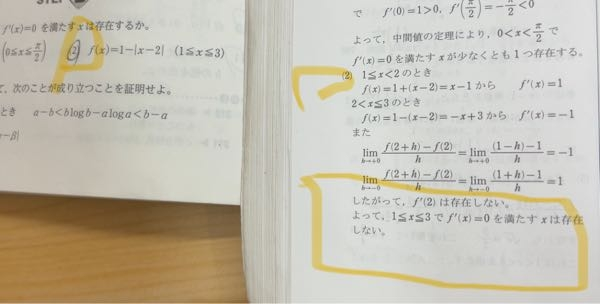 f'(x)=0 を満たす x は存在するか。
(0≦x≦π/2) (2) f(x)=1-|x-2| (1≦x≦3)
て、次のことが成り立つことを証明せよ。
とき a-b<blogb-aloga<b-a
-β|
で f'(0)=1>0, f'(π/2)=-π/2<0
よって、中間値の定理により、0<x<π/2 で
f'(x)=0 を満たす x が少なくとも1つ存在する。
(2) 1≦x<2 のとき
f(x)=1+(x-2)=x-1 から f'(x)=1
2<x≦3 のとき
f(x)=1-(x-2)=-x+3 から f'(x)=-1
また
lim h→+0 f(2+h)-f(2)/h = lim h→+0 (1-h)-1/h = -1
lim h→-0 f(2+h)-f(2)/h = lim h→-0 (1+h)-1/h = 1
したがって、f'(2) は存在しない。
よって、1≦x≦3 で f'(x)=0 を満たす x は存在
しない。